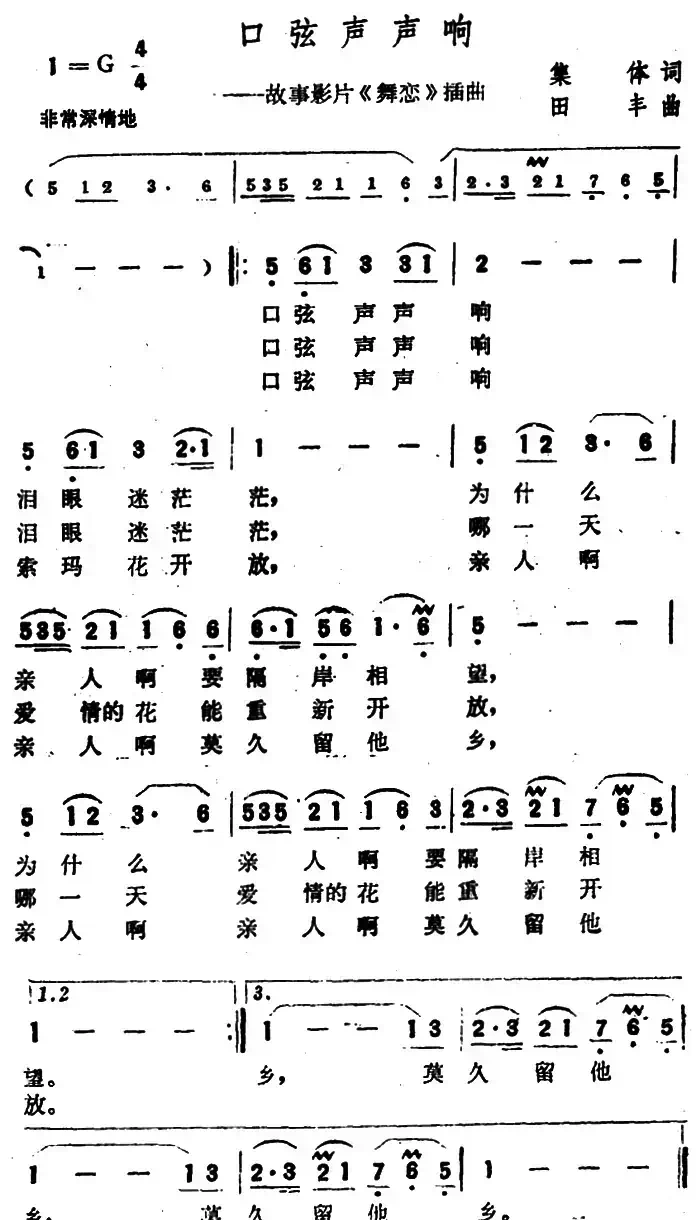 口弦声声响
1=G 4/4
——故事影片《舞恋》插曲
集体词
田丰曲
非常深情地
( 5 12 3· 6 | 535 21 1 6 3 | 2·3 21 7 6 5 |
1 — — — ) ‖: 5 61 3 31 | 2 — — — |
口弦声声响
口弦声声响
口弦声声响
5 6·1 3 2·1 | 1 — — — | 5 12 3· 6 |
泪眼迷茫茫， 为什么
泪眼迷茫茫， 哪一天
索玛花开放， 亲人啊
535 21 1 6 6 | 6·1 56 1· 6 | 5 — — — |
亲人啊要隔岸相望，
爱情的花能重新开放，
亲人啊莫久留他乡，
5 12 3· 6 | 535 21 1 6 3 | 2·3 21 7 6 5 |
为什么 亲人啊要隔岸相
哪一天 爱情的花能重新开
亲人啊 亲人啊莫久留他
1.2 3.
1 — — — :‖ 1 — — 13 | 2·3 21 7 6 5 |
望。 乡， 莫久留他
放。
1 — — 13 | 2·3 21 7 6 5 | 1 — — — ‖
乡， 莫久留他乡。